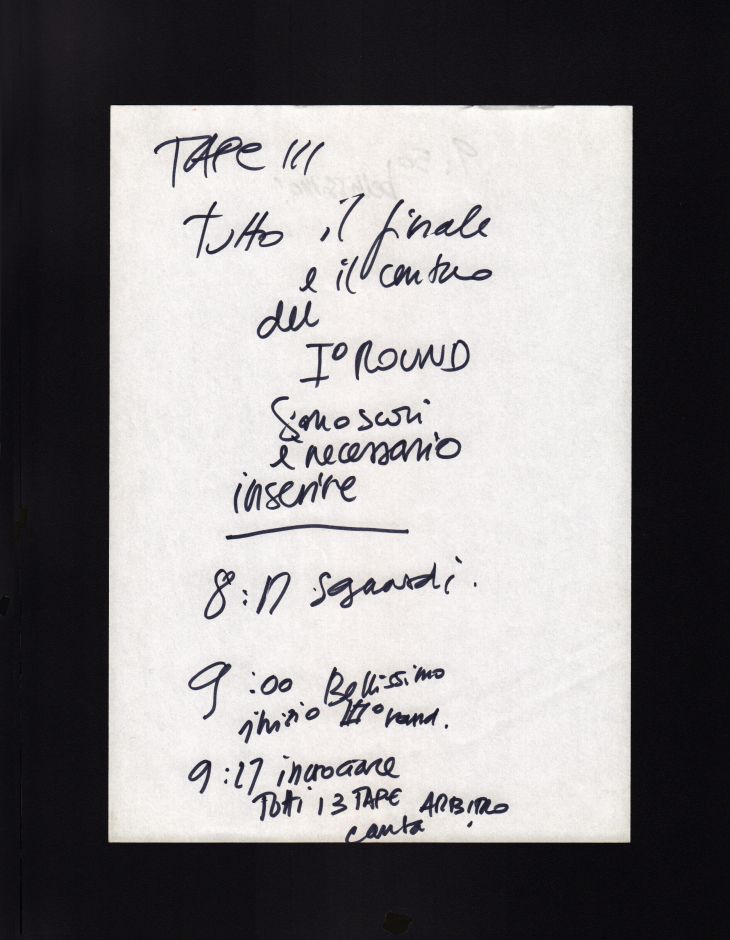 TAPE III
tutto il finale
e il centro
del
I° ROUND
sono scuri
e necessario
inserire
8:17 sguardi.
9:00 Bellissimo
inizio III° round.
9:17 incrociare
TUTTI I 3 TAPE ARBITRO
canta